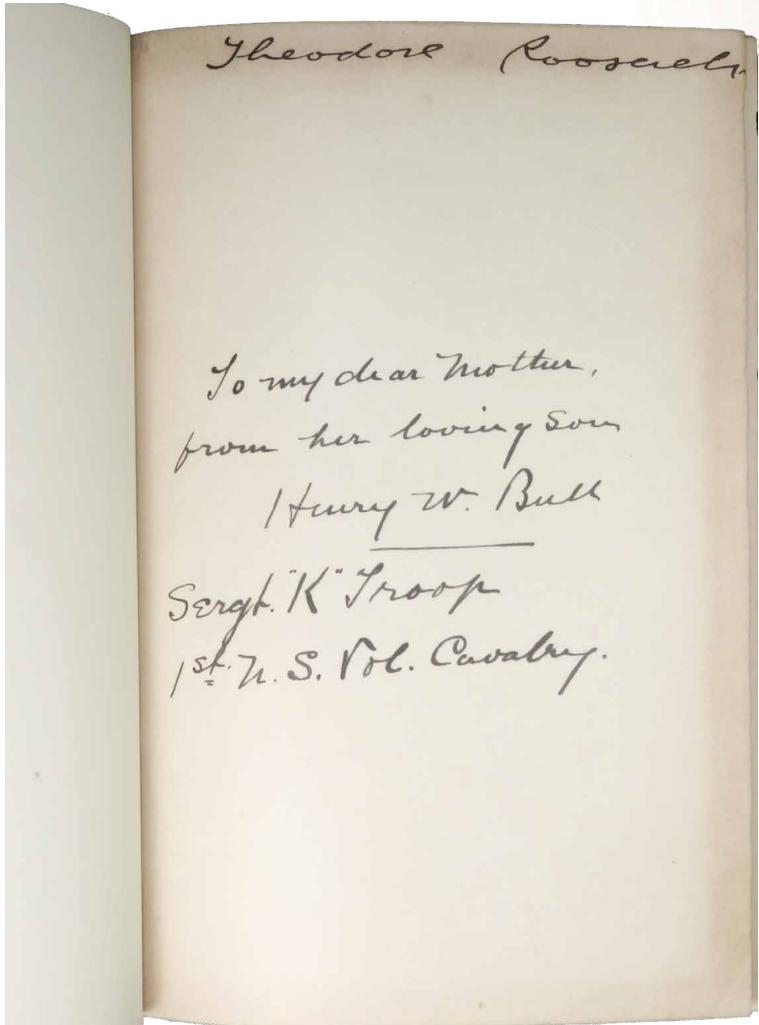 Theodore Roosevelt
To my dear Mother,
from her loving Son
Henry W. Bull
Sergt. "K" Troop
1st. U. S. Vol. Cavalry.